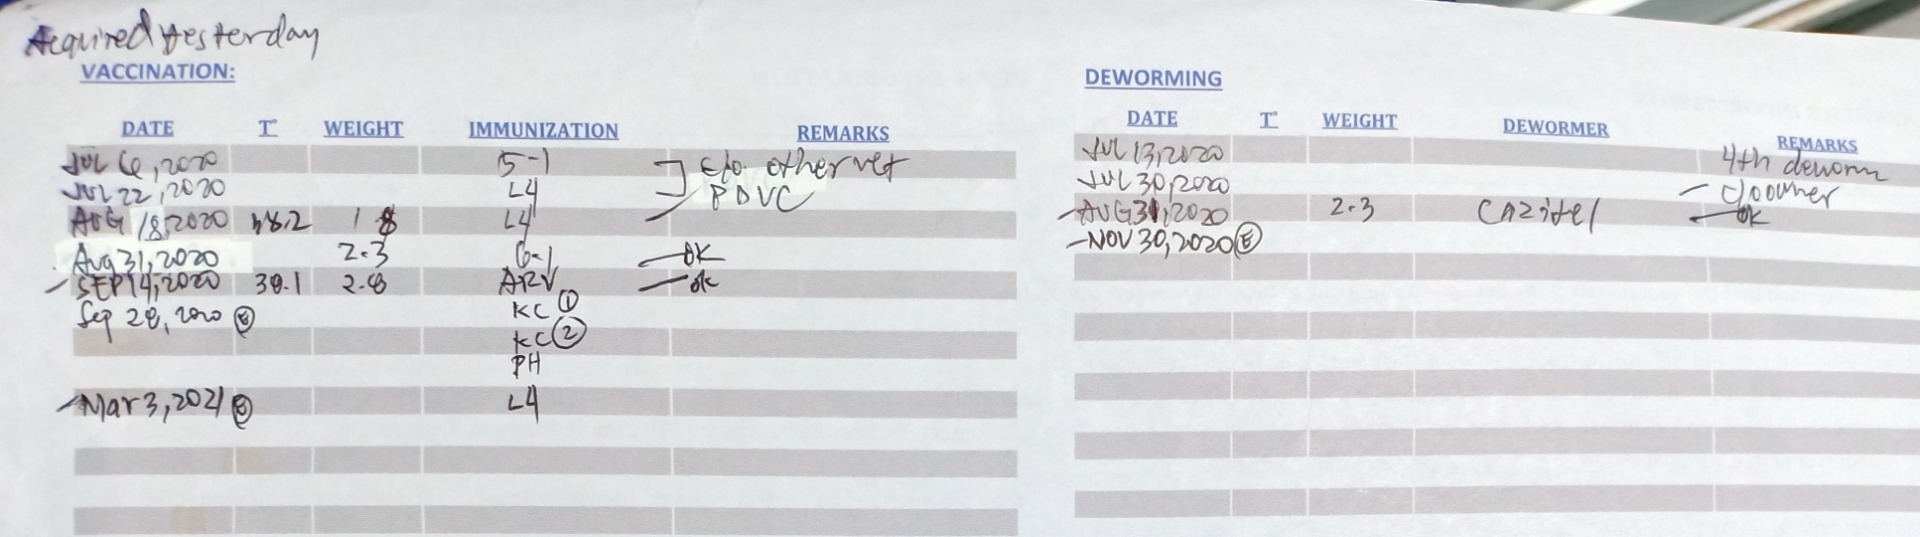 Acquired yesterday
VACCINATION:
DATE T° WEIGHT IMMUNIZATION REMARKS
JUL 6, 2020 5-1 c/o other vet
JUL 22, 2020 L4 PDVC
AUG 18, 2020 38.2 1 8 L4
Aug 31, 2020 2.3 6-1 - OK
SEP 14, 2020 38.1 2.8 ARV - ok
Sep 28, 2020 KC ①
KC ②
PH
Mar 3, 2021 L4
DEWORMING
DATE T° WEIGHT DEWORMER REMARKS
JUL 13, 2020 4th deworm
JUL 30, 2020 - c/o owner
- AUG 31, 2020 2.3 Cazitel - ok
- NOV 30, 2020 Ⓔ